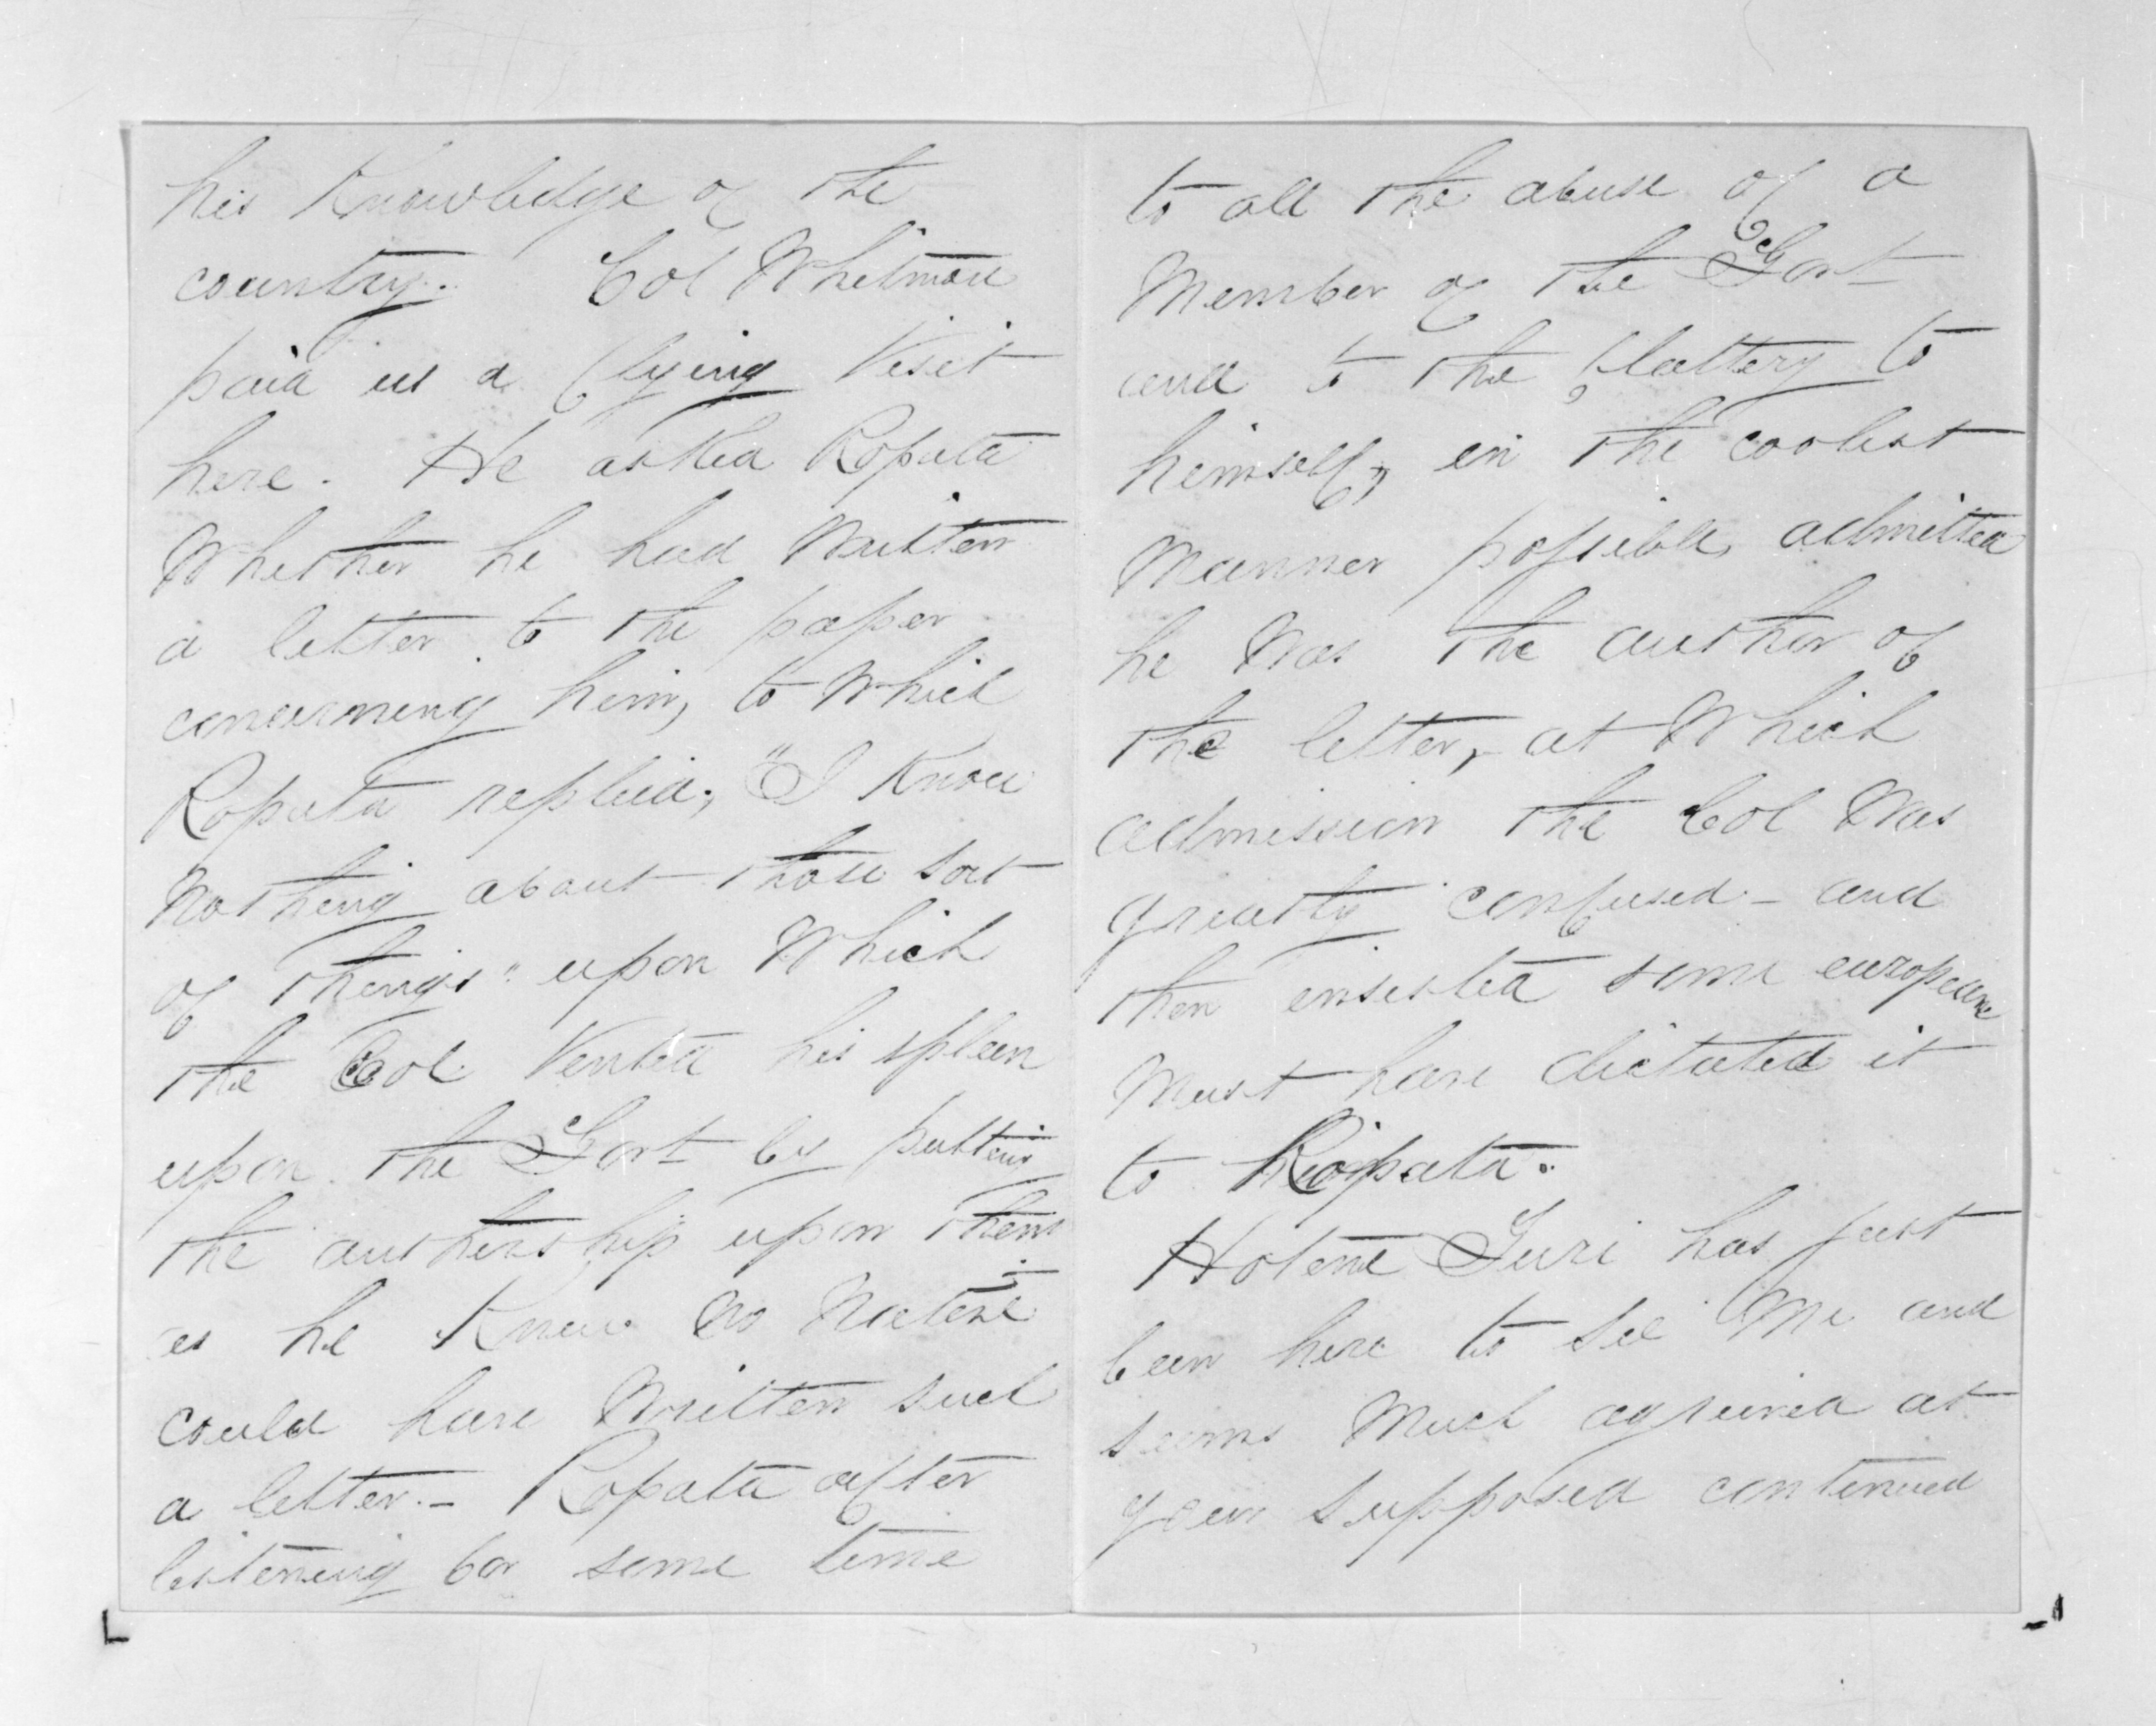 his Knowledge of the
country. Col Whitmore
paid us a flying visit
here. He asked Ropata
Whether he had Written
a letter to the paper
concerning him, to Which
Ropata replied; "I Know
"nothing about those sort
of things" upon Which
the Col Vented his spleen
upon the Govt by putting
the authorship upon them
as he Knew no Native
could have Written such
a letter. - Ropata after
listening for some time
to all the abuse of a
Member of the Govt
and to the flattery to
himself, in the coolest
Manner possible, admitted
he Was the author of
the letter, at Which
admission the Col Was
greatly confused - and
then insisted some european
Must have dictated it
to Ropata.
Hotene Turi has just
been here to see Me and
seems Much agrieved at
your supposed continued